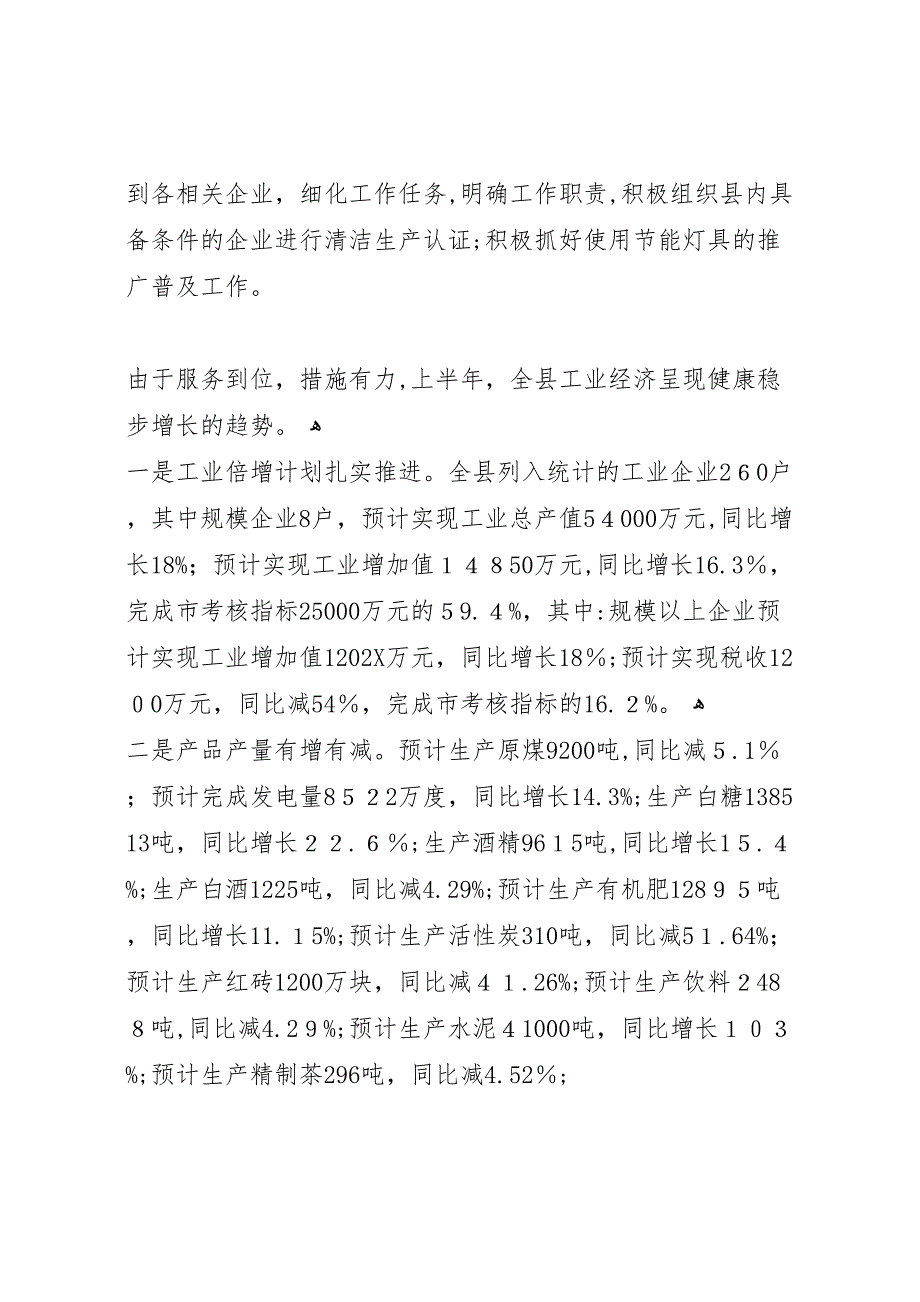 到各相关企业，细化工作任务,明确工作职责,积极组织县内具
备条件的企业进行清洁生产认证;积极抓好使用节能灯具的推
广普及工作。
由于服务到位，措施有力,上半年，全县工业经济呈现健康稳
步增长的趋势。 ﻫ
一是工业倍增计划扎实推进。全县列入统计的工业企业2６0户
，其中规模企业8户，预计实现工业总产值5４000万元,同比增
长18%；预计实现工业增加值１４８50万元,同比增长16.3％，
完成市考核指标25000万元的５9.４%，其中:规模以上企业预
计实现工业增加值1202X万元，同比增长18％;预计实现税收12
００万元，同比减54％，完成市考核指标的16.２%。 ﻫ
二是产品产量有增有减。预计生产原煤9200吨,同比减５.1％
；预计完成发电量8５２2万度，同比增长14.3%;生产白糖1385
13吨，同比增长２２.６％;生产酒精96１5吨,同比增长1５.４
%;生产白酒1225吨，同比减4.29%;预计生产有机肥128９５吨
，同比增长11.１5%;预计生产活性炭310吨，同比减5１.64%；
预计生产红砖1200万块，同比减４１.26%;预计生产饮料２4８
８吨,同比减4.2９%;预计生产水泥４1000吨，同比增长１０３
%;预计生产精制茶296吨，同比减4.52％;